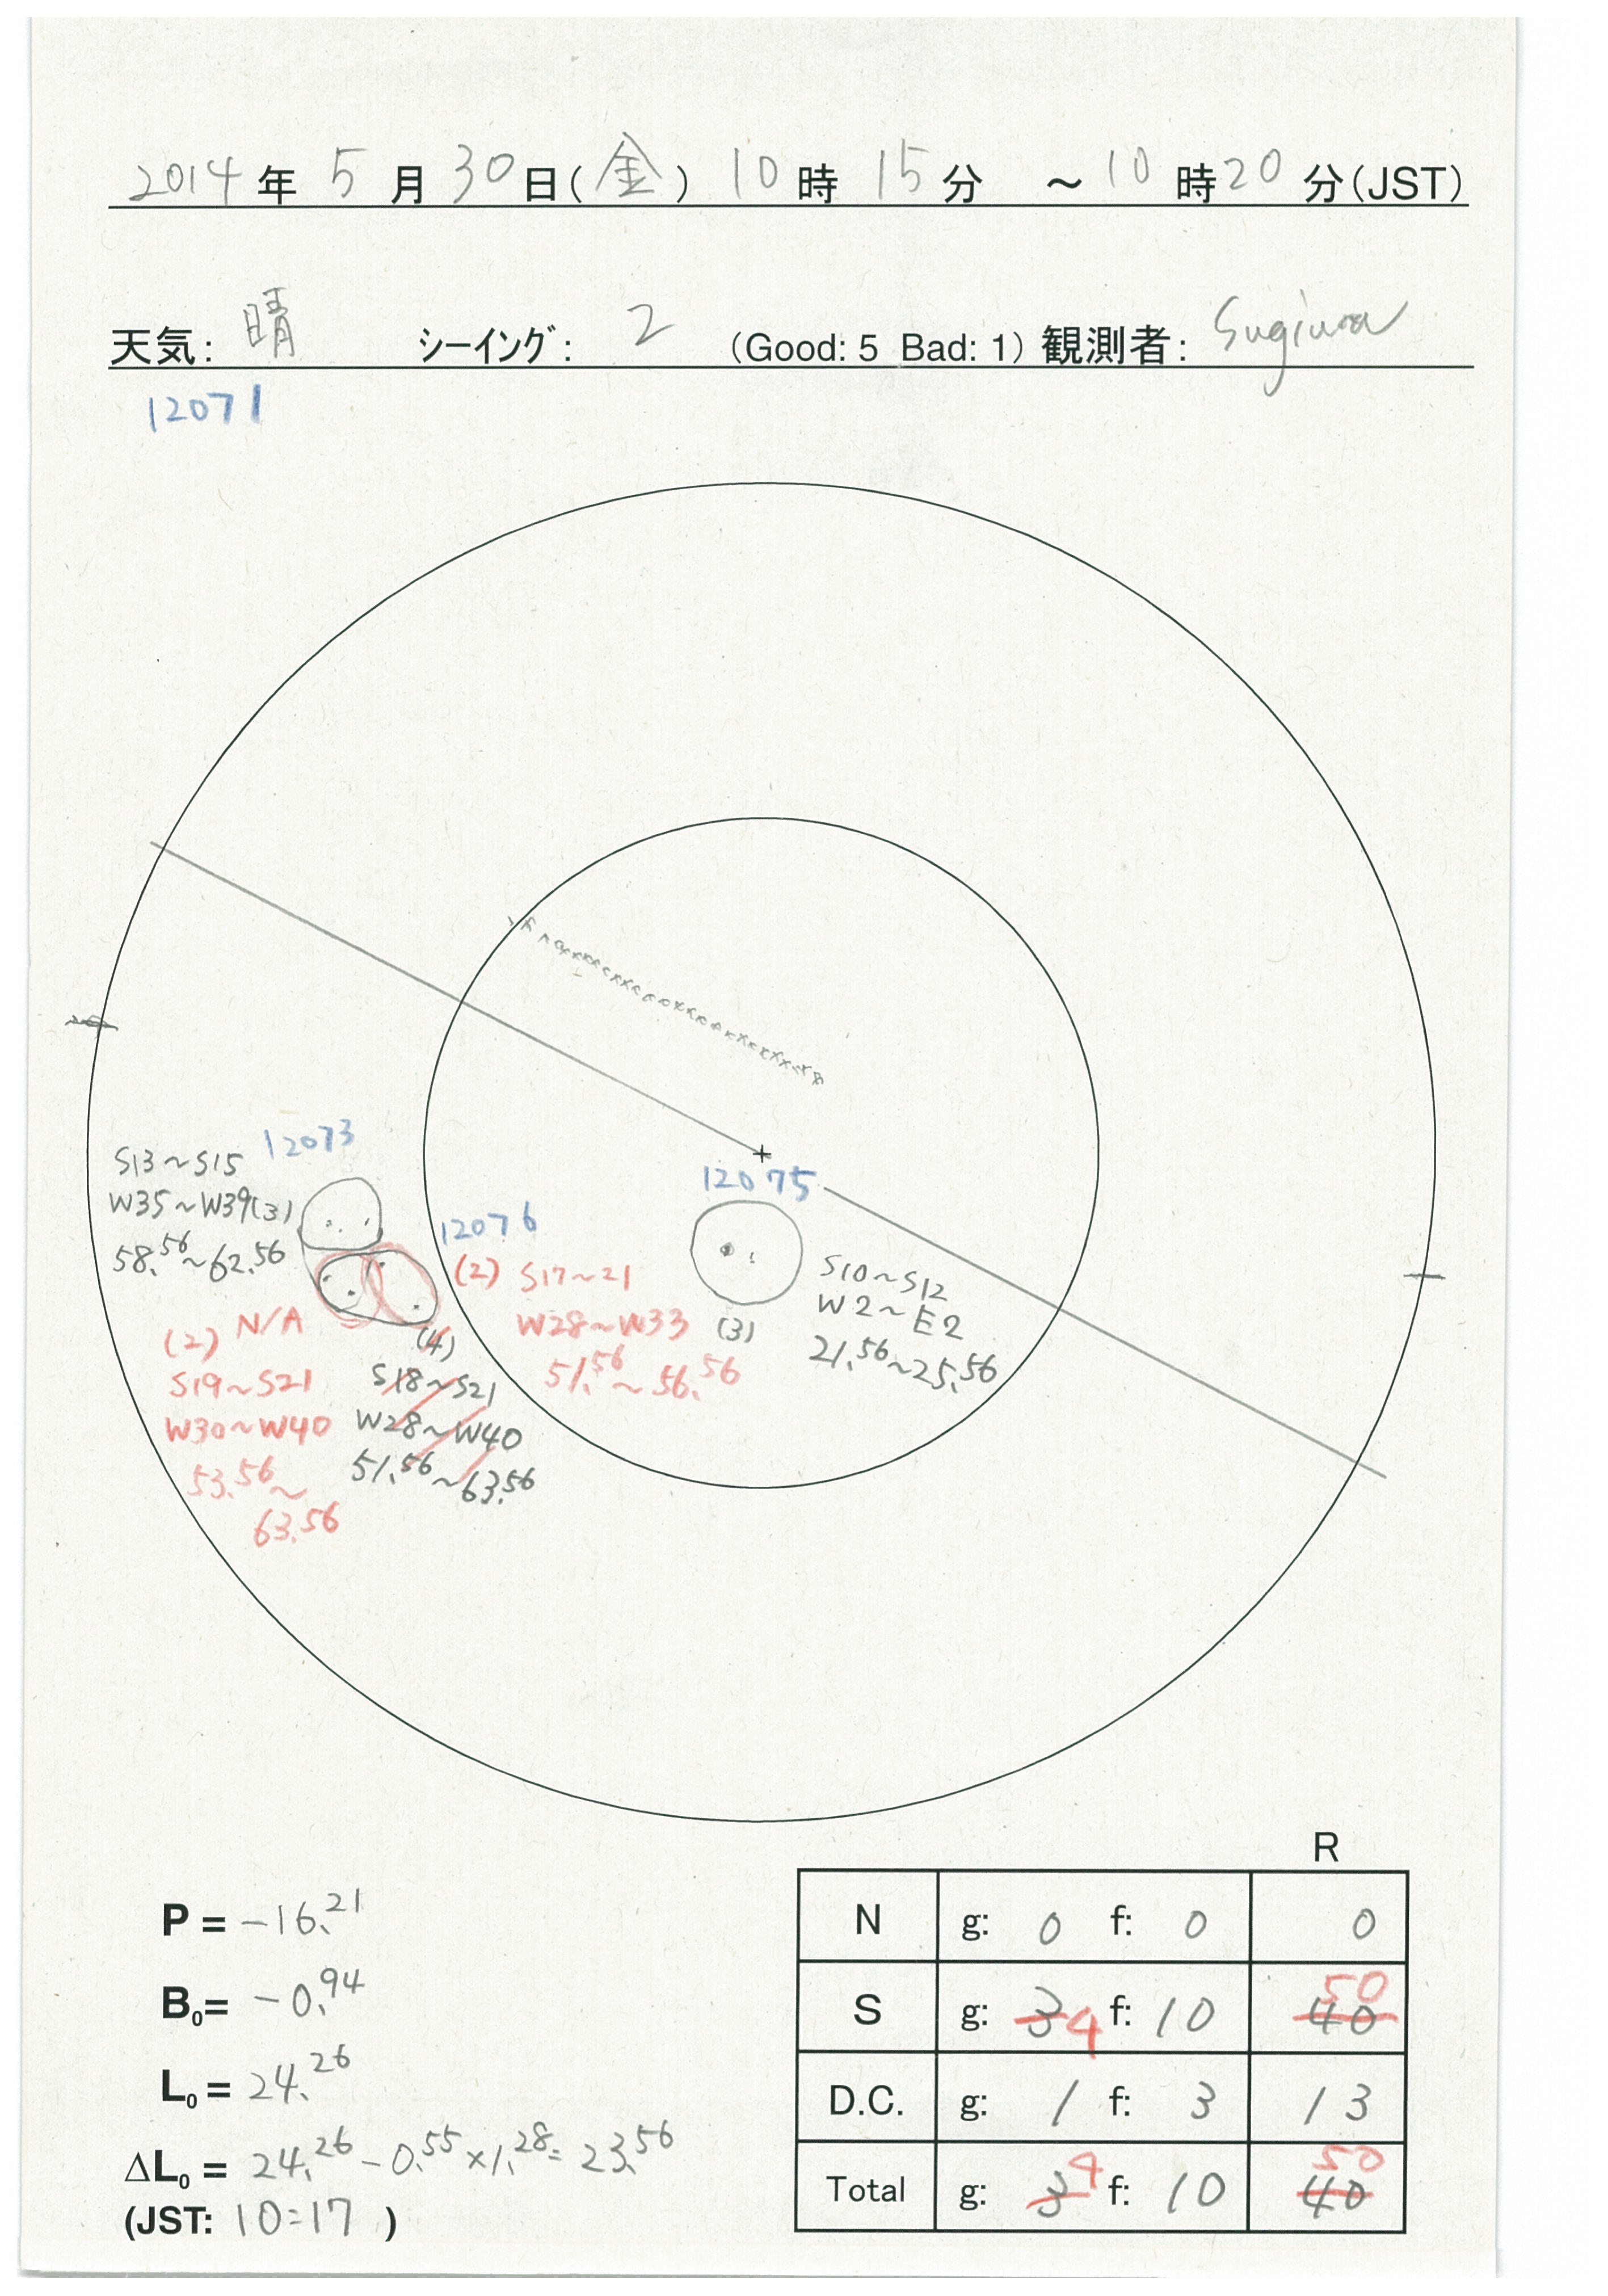 2014年 5月30日(金) 10時 15分 ～10時20分(JST)
天気: 晴 シーイング: 2 (Good: 5 Bad: 1) 観測者: Sugiura
12071
12073
S13～S15
W35～W39(3)
58.56～62.56
12076
(2) S17～21
W28～W33
51.56～56.56
12075
S10～S12
W2～E2
(3)
21.56～25.56
(2) N/A
S19～S21
W30～W40
53.56～
63.56
(4)
S18～S21
W28～W40
51.56～63.56
P = -16.21
B0= -0.94
L0 = 24.26
ΔL0 = 24.26 - 0.55 × 1.28 = 23.56
(JST: 10:17 )
R
N g: 0 f: 0 0
S g: 3 4 f: 10 40 50
D.C. g: 1 f: 3 13
Total g: 3 4 f: 10 40 50